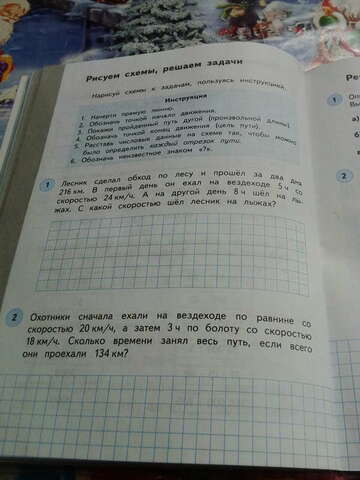 Рисуем схемы, решаем задачи
Нарисуй схемы к задачам, пользуясь инструкцией.
Инструкция
1. Начерти прямую линию.
2. Обозначь точкой начало движения.
3. Покажи пройденный путь дугой (произвольной длины).
4. Обозначь точкой конец движения (цель пути).
5. Расставь числовые данные на схеме так, чтобы можно
было определить каждый отрезок пути.
6. Обозначь неизвестное знаком «?».
1 Лесник сделал обход по лесу и прошёл за два дня
216 км. В первый день он ехал на вездеходе 5 ч со
скоростью 24 км/ч. А на другой день 8 ч шёл на лы-
жах. С какой скоростью шёл лесник на лыжах?
2 Охотники сначала ехали на вездеходе по равнине со
скоростью 20 км/ч, а затем 3 ч по болоту со скоростью
18 км/ч. Сколько времени занял весь путь, если всего
они проехали 134 км?
Ре
1
а)